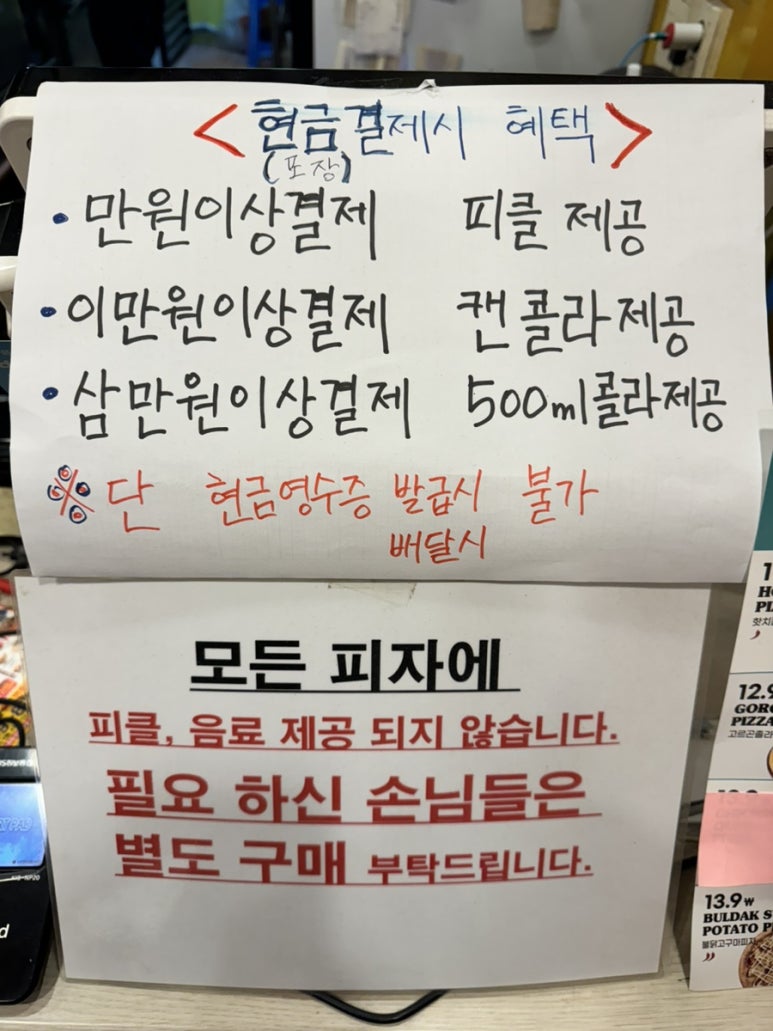 < 현금결제시 혜택 >
(포장)
• 만원이상결제 피클 제공
• 이만원이상결제 캔콜라제공
• 삼만원이상결제 500ml콜라제공
※ 단 현금영수증 발급시 불가
배달시
모든 피자에
피클, 음료 제공 되지 않습니다.
필요 하신 손님들은
별도 구매 부탁드립니다.
12.9
PIZZA
13.9₩
BULDAK
POTATO
불닭고구마피자